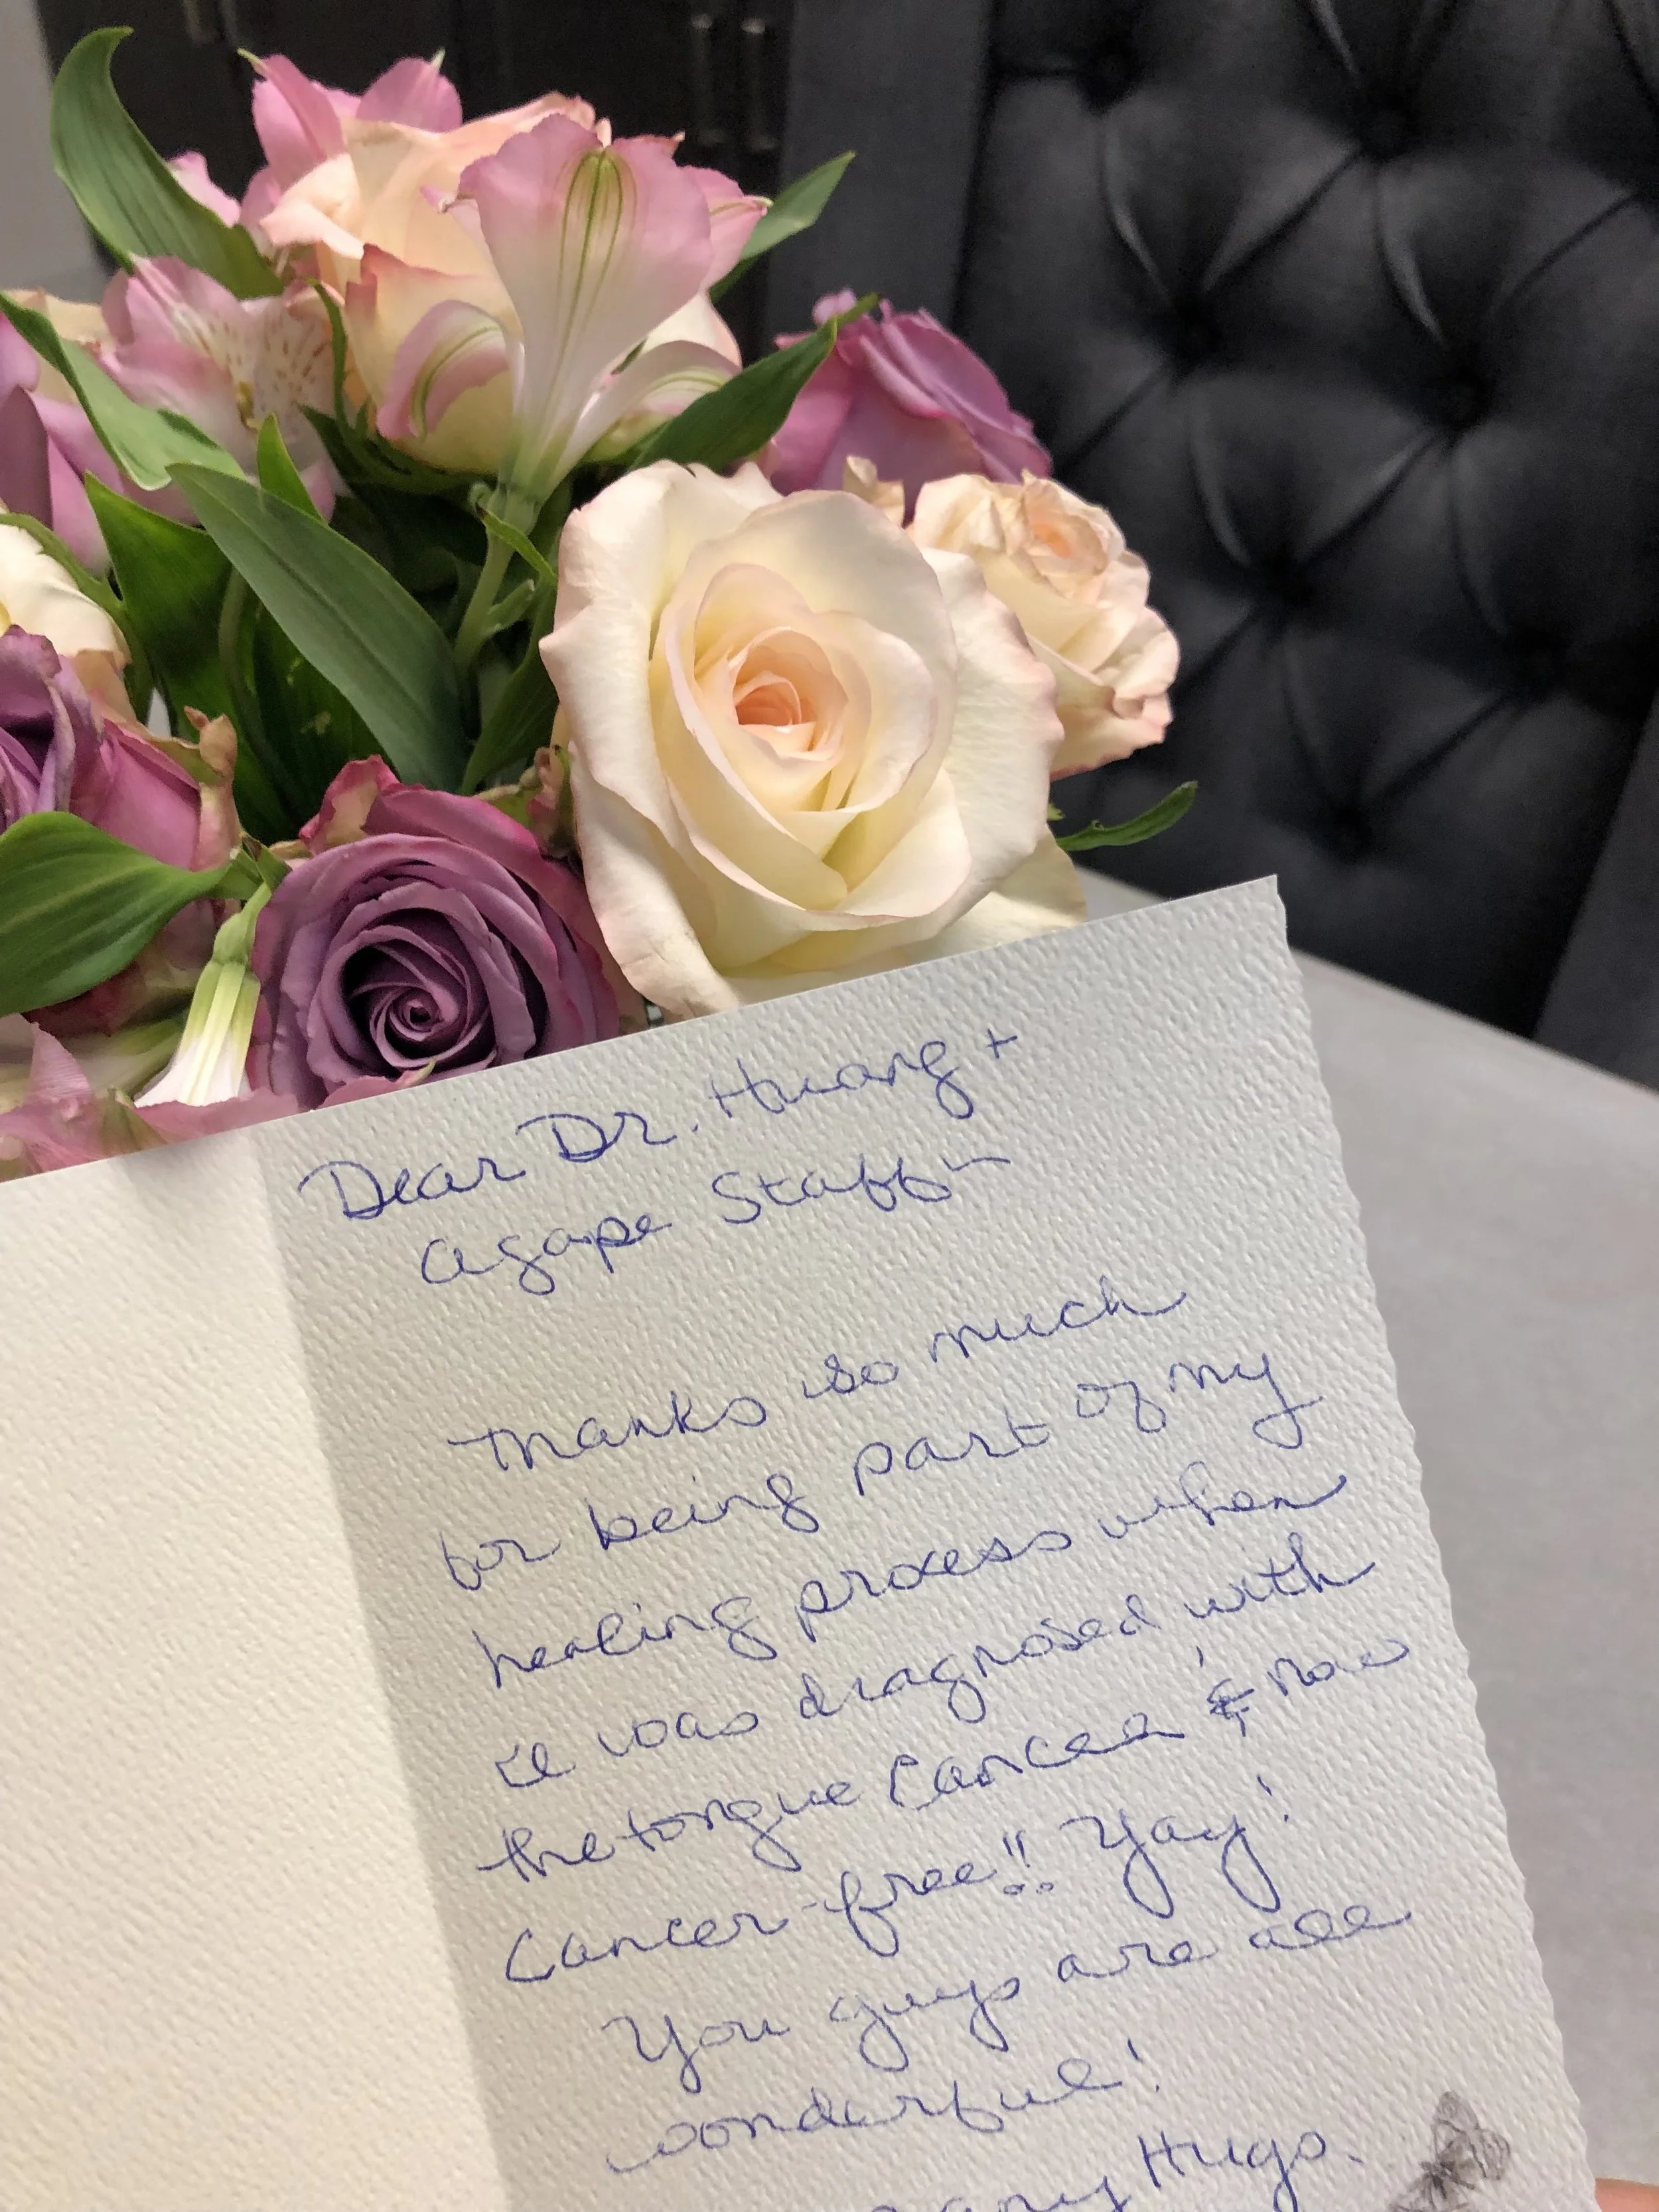 Dear Dr. Huang +
Agape Staff ~
Thanks so much
for being part of my
healing process when
I was diagnosed with
the tongue cancer & now
cancer-free!! Yay!
You guys are all
wonderful!
Hugs.